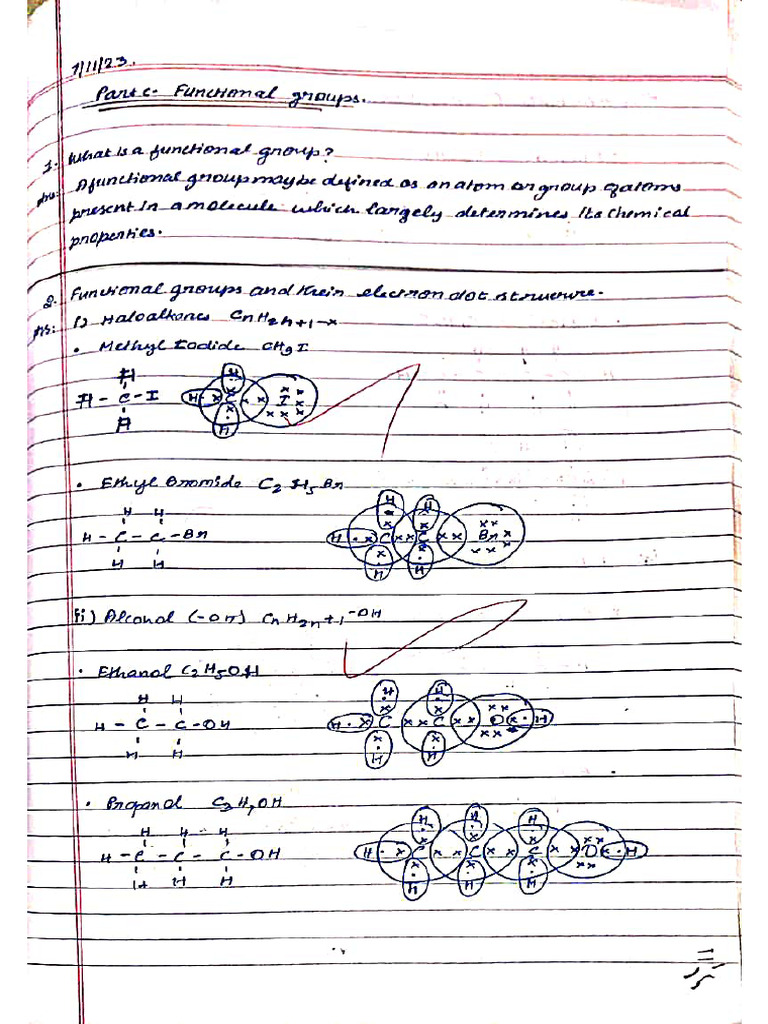 7/11/23.
Part C- Functional groups.
1. What is a functional group?
Ans: A functional group may be defined as an atom or group of atoms
present in a molecule which largely determines its chemical
properties.
2. Functional groups and their electron dot structure.
Ans: i) Haloalkanes CnH2n+1-x
• Methyl Iodide CH3I
H
H - C - I
H
H
H · x C x x I
H
• Ethyl Bromide C2H5Br
H H
H - C - C - Br
H H
H H
H · x C x x C x x Br
H H
ii) Alcohol (-OH) CnH2n+1-OH
• Ethanol C2H5OH
H H
H - C - C - OH
H H
H H
H · x C x x C x x O x · H
H H
• Propanol C3H7OH
H H H
H - C - C - C - OH
H H H
H H H
H · x C x x C x x C x x O x · H
H H H